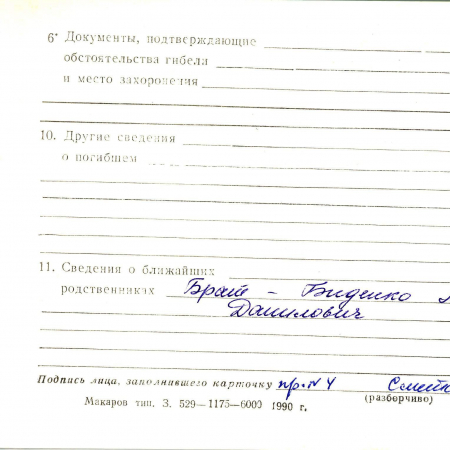 6* Документы, подтверждающие
обстоятельства гибели
и место захоронения
10. Другие сведения
о погибшем
11. Сведения о ближайших
родственниках Брат - Биденко
Данилович
Подпись лица, заполнившего карточку пр. № 4
(разборчиво)
Макаров тип. З. 529—1175—6000 1990 г.